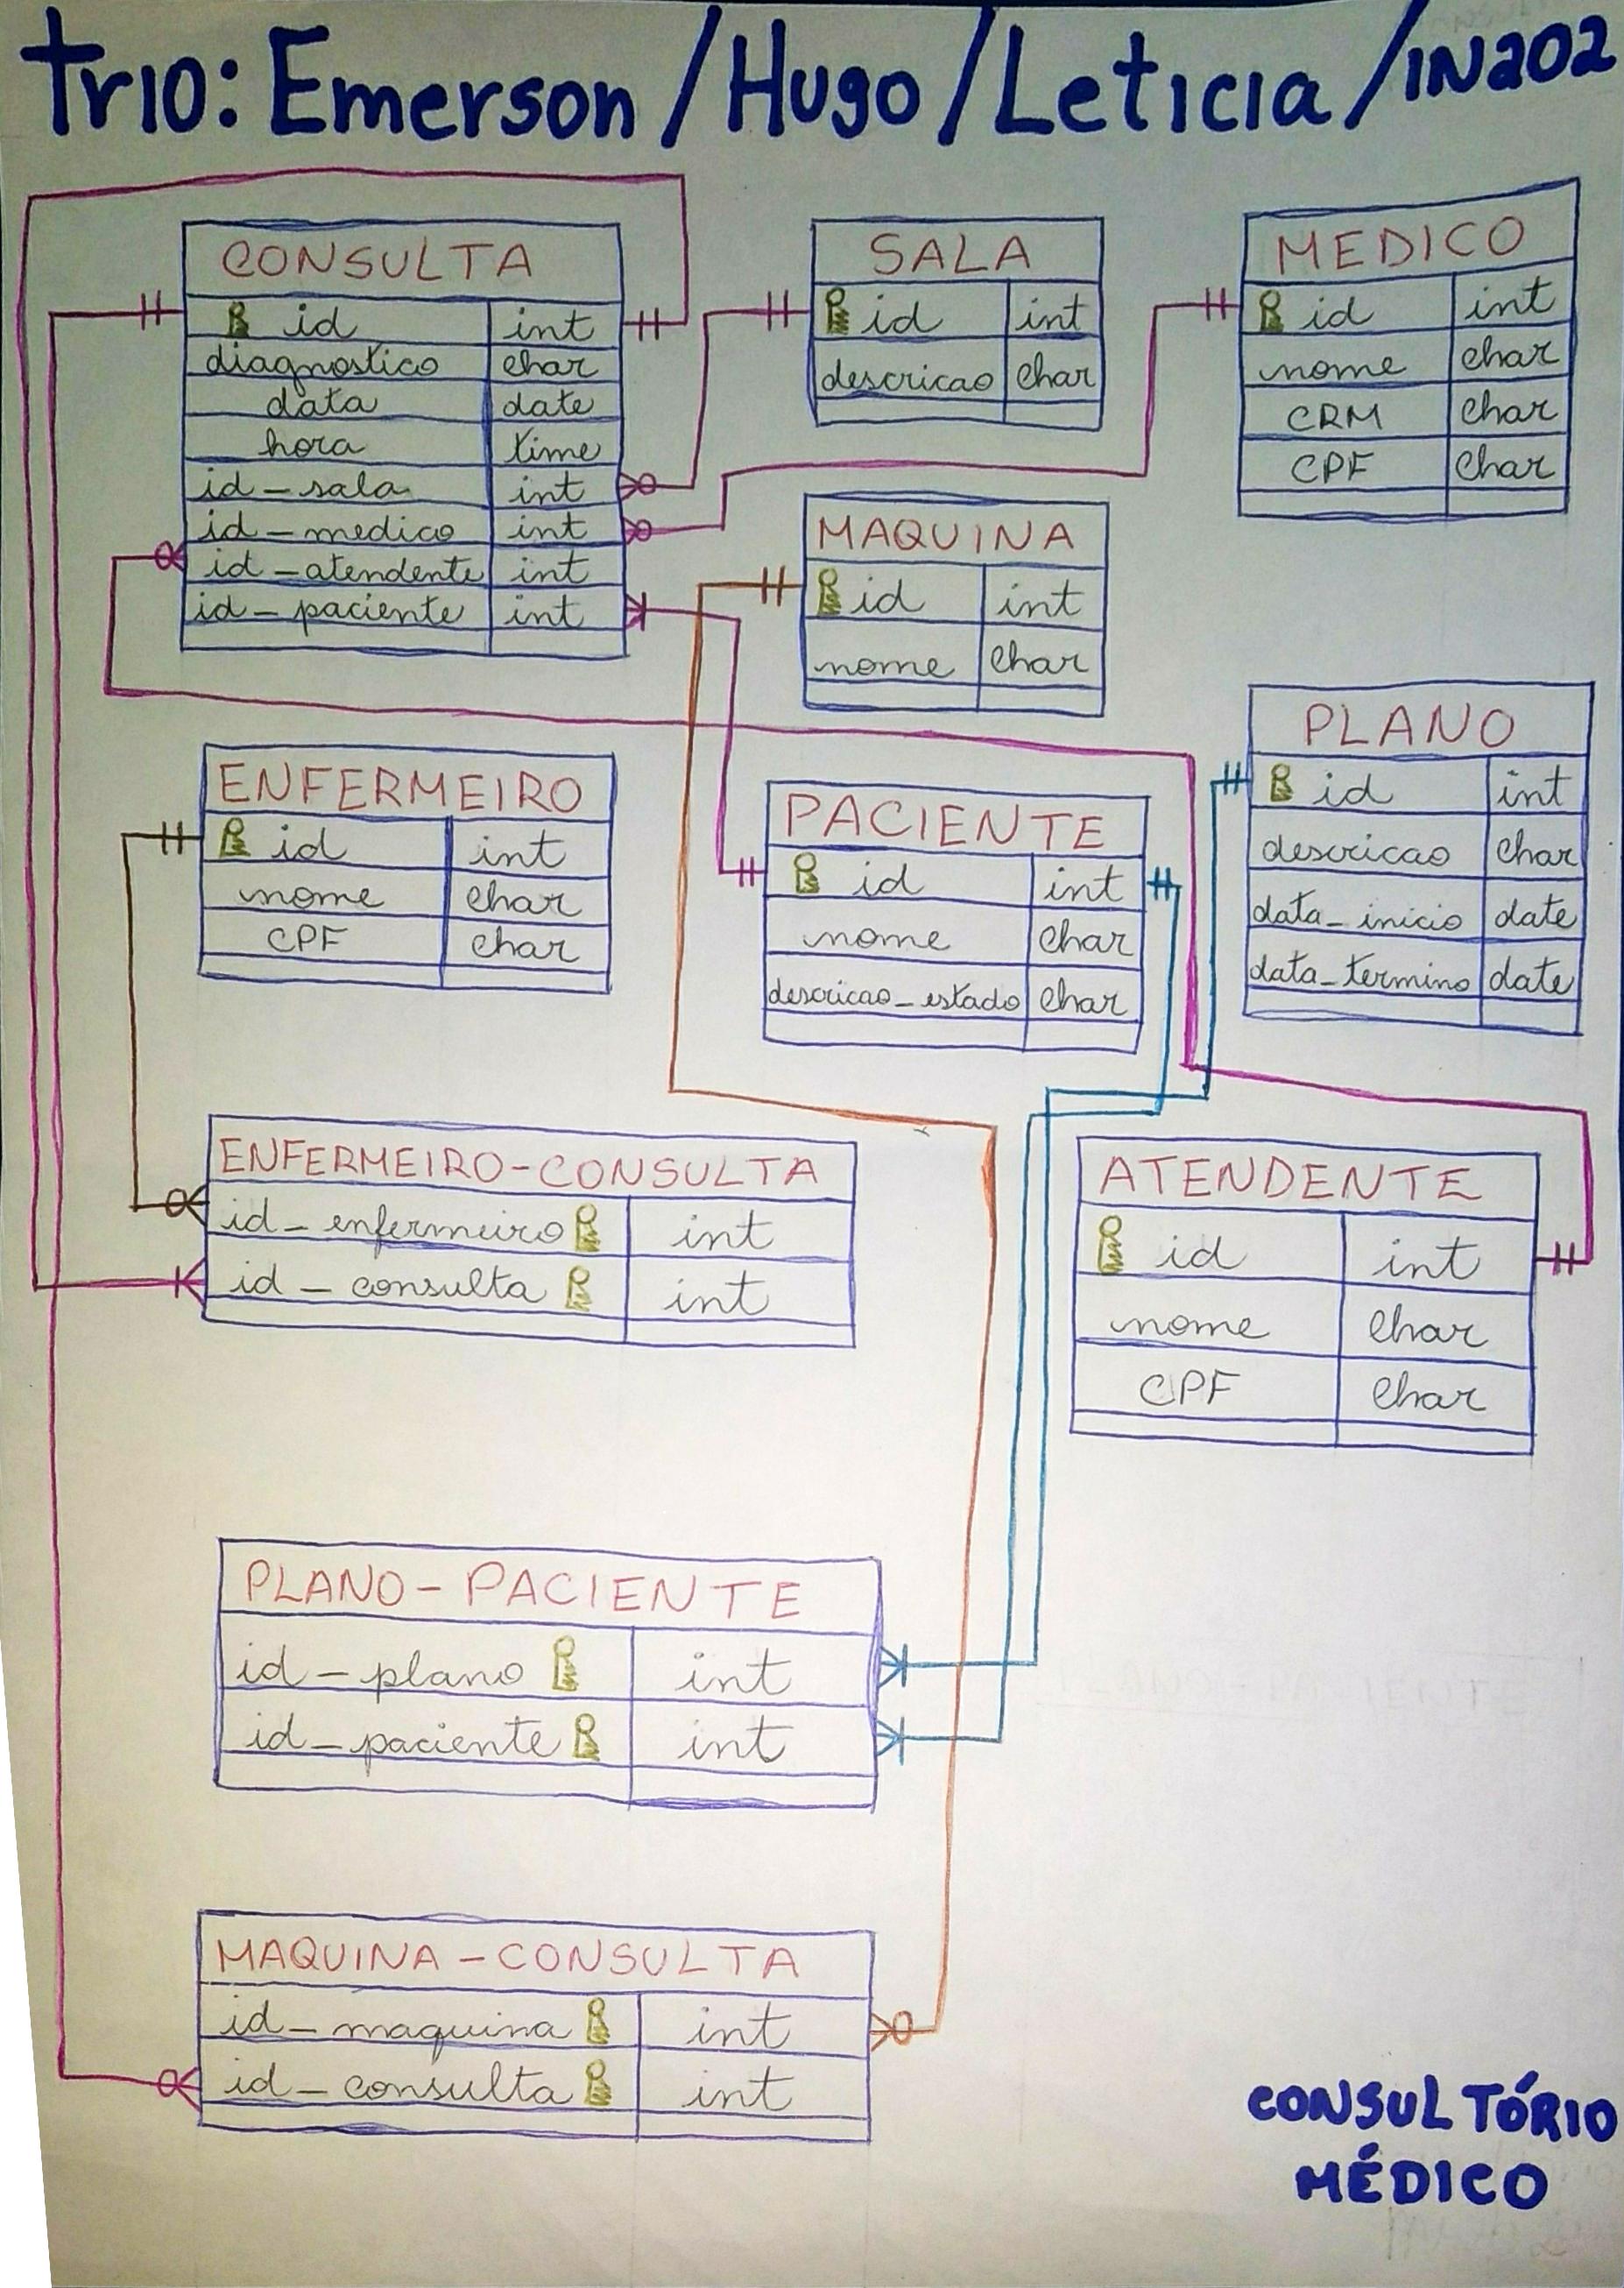 Trio: Emerson / Hugo / Leticia / IN202
CONSULTA
id int
diagnostico char
data date
hora time
id_sala int
id_medico int
id_atendente int
id_paciente int
SALA
id int
descricao char
MEDICO
id int
nome char
CRM char
CPF char
MAQUINA
id int
nome char
ENFERMEIRO
id int
nome char
CPF char
PACIENTE
id int
nome char
descricao_estado char
PLANO
id int
descricao char
data_inicio date
data_termino date
ENFERMEIRO-CONSULTA
id_enfermeiro int
id_consulta int
ATENDENTE
id int
nome char
CPF char
PLANO-PACIENTE
id_plano int
id_paciente int
MAQUINA-CONSULTA
id_maquina int
id_consulta int
CONSULTÓRIO
MÉDICO